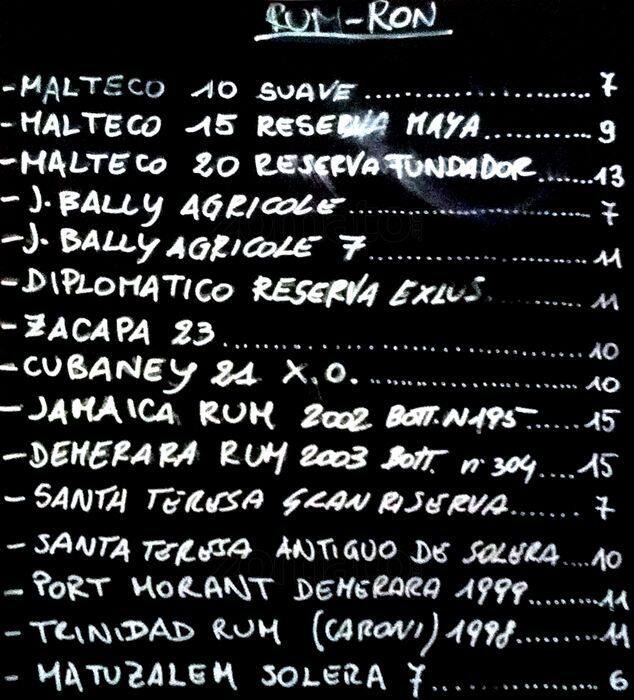 RUM-RON
-MALTECO 10 SUAVE....................7
-MALTECO 15 RESERVA MAYA...........9
-MALTECO 20 RESERVA FUNDADOR......13
-J. BALLY AGRICOLE....................7
-J. BALLY AGRICOLE 7..................11
-DIPLOMATICO RESERVA EXLUS.........11
-ZACAPA 23..........................10
-CUBANEY 21 X.O.....................10
-JAMAICA RUM 2002 BOTT. N195.....15
-DEMERARA RUM 2003 BOTT. n° 304....15
-SANTA TERESA GRAN RISERVA.......7
-SANTA TERESA ANTIGUO DE SOLERA....10
-PORT MORANT DEMERARA 1999.......11
-TRINIDAD RUM (CARONI) 1998.......11
-MATUZALEM SOLERA 7.............6